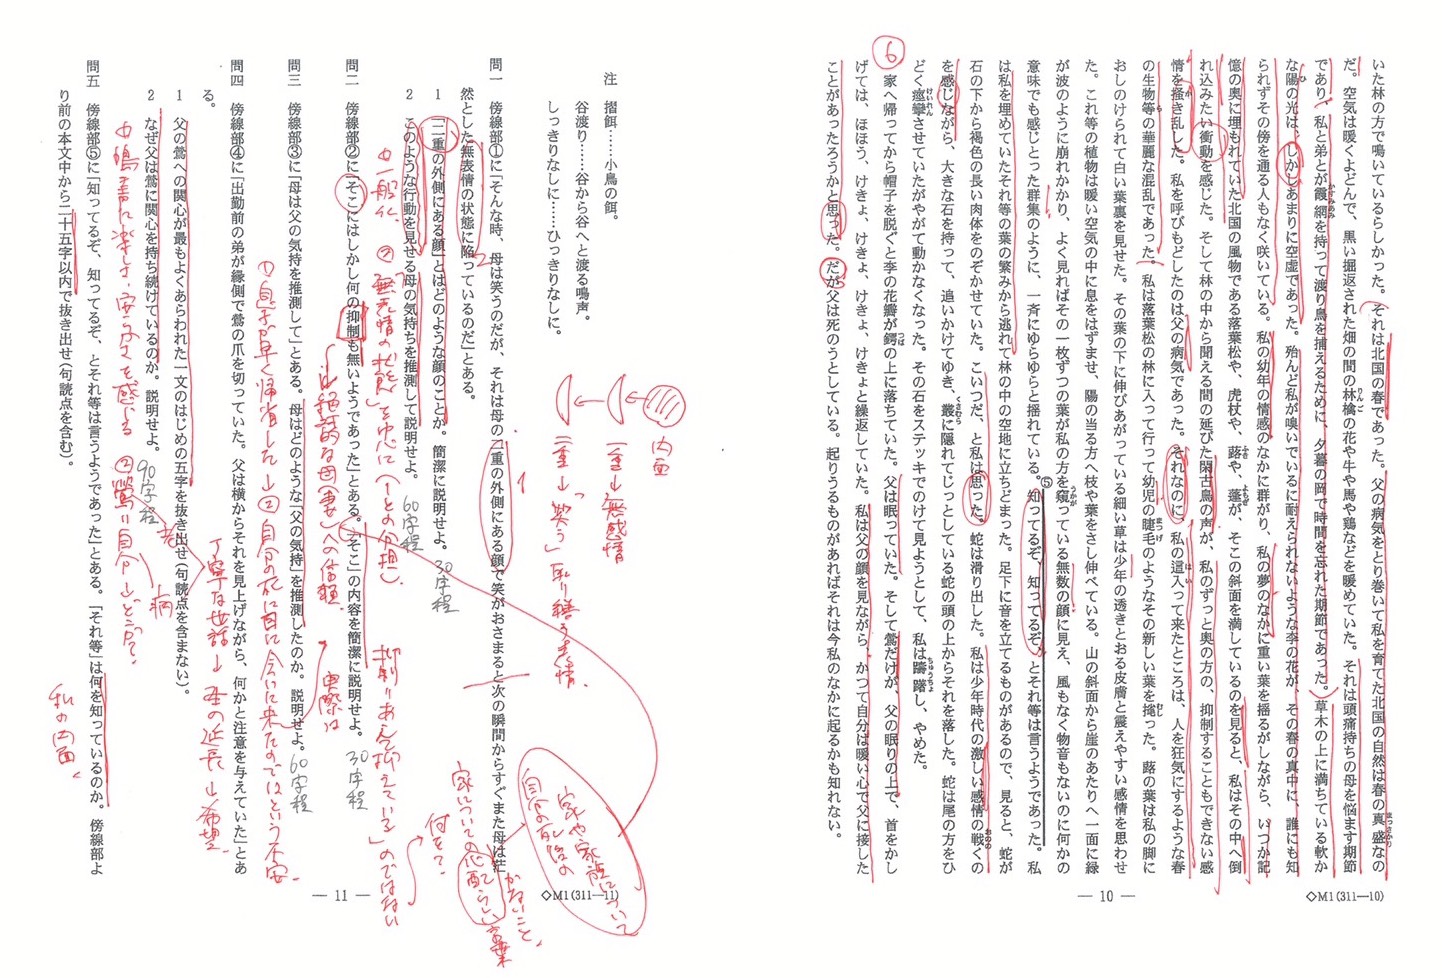 いた林の方で鳴いているらしかった。それは北国の春であった。父の病気をとり巻いて私を育てた北国の自然は春の真盛なの
だ。空気は暖くよどんで、黒い掘返された畑の間の林檎の花や牛や馬や鶏などを暖めていた。それは頭痛持ちの母を悩ます期節
であり、私と弟とが霞網を持って渡り鳥を捕えるために、夕暮の岡で時間を忘れた期節であった。草木の上に満ちている軟か
な陽の光は、しかしあまりに空虚であった。殆んど私が嗅いでいるに耐えられないような李の花が、その春の真中に、誰にも知
られずその傍を通る人もなく咲いている。私の幼年の情感のなかに群がり、私の夢のなかに重い葉を揺るがしながら、いつか記
憶の奥に埋もれていた北国の風物である落葉松や、虎杖や、蕗や、蓬が、そこの斜面を満しているのを見ると、私はその中へ倒
れ込みたい衝動を感じた。そして林の中から聞える間の延びた閑古鳥の声が、私のずっと奥の方の、抑制することもできない感
情を掻き乱した。私を呼びもどしたのは父の病気であった。それなのに、私の這入って来たところは、人を狂気にするような春
の生物等の華麗な混乱であった。私は落葉松の林に入って行って幼児の睫毛のようなその新しい葉を挘った。蕗の葉は私の脚に
おしのけられて白い葉裏を見せた。その葉の下に伸びあがっている細い草は少年の透きとおる皮膚と震えやすい感情を思わせ
た。これ等の植物は暖い空気の中に息をはずませ、陽の当る方へ枝や葉をさし伸べている。山の斜面から崖のあたりへ一面に緑
が波のように崩れかかり、よく見ればその一枚ずつの葉が私の方を窺っている無数の顔に見え、風もなく物音もないのに何かの
意味でも感じとった群集のように、一斉にゆらゆらと揺れている。⑤知ってるぞ、知ってるぞ、とそれ等は言うようであった。私
は私を埋めていたそれ等の葉の繁みから逃れて林の中の空地に立ちどまった。足下に音を立てるものがあるので、見ると、蛇が
石の下から褐色の長い肉体をのぞかせていた。こいつだ、と私は思った。蛇は滑り出した。私は少年時代の激しい感情の戦くの
を感じながら、大きな石を持って、追いかけてゆき、叢に隠れてじっとしている蛇の頭の上からそれを落した。蛇は尾の方をひ
どく痙攣させていたがやがて動かなくなった。その石をステッキでのけて見ようとして、私は躊躇し、やめた。
⑥
家へ帰ってから帽子を脱ぐと李の花瓣が鍔の上に落ちていた。父は眠っていた。そして鶯だけが、父の眠りの上で、首をかし
げては、ほほう、けきょ、けきょ、けきょ、けきょと繰返していた。私は父の顔を見ながら、かつて自分は暖い心で父に接した
ことがあったろうかと思った。だが父は死のうとしている。起りうるものがあればそれは今私のなかに起るかも知れない。
— 10 —
◇M1(311—10)
注 摺餌……小鳥の餌。
谷渡り……谷から谷へと渡る鳴声。
しっきりなしに……ひっきりなしに。
内面
一重→無感情
二重→「笑う」取り繕う表情
問一 傍線部①に「そんな時、母は笑うのだが、それは母の二重の外側にある顔で笑がおさまると次の瞬間からすぐまた母は茫
然とした無表情の状態に陥っているのだ」とある。
1 「二重の外側にある顔」とはどのような顔のことか。簡潔に説明せよ。
30字程
2 このような行動を見せる母の気持ちを推測して説明せよ。
60字程
家や家族について
自分の死後の
家についての心配
かないこと
言葉
①一般に ②「無表情の状態」をゆだに
抑制りあえて抑えている」のではない
何を?
問二 傍線部②に「そこにはしかし何の抑制も無いようであった」とある。「そこ」の内容を簡潔に説明せよ。
30字程
絶対的な母(妻)への信頼
実際は
問三 傍線部③に「母は父の気持を推測して」とある。母はどのような「父の気持」を推測したのか。説明せよ。
60字程
①息子が早く帰省した→②自分の死に目に会いに来たのではという不安
問四 傍線部④に「出勤前の弟が縁側で鶯の爪を切っていた。父は横からそれを見上げながら、何かと注意を与えていた」とあ
る。
丁寧な世話→生の延長→希望
1 父の鶯への関心が最もよくあらわれた一文のはじめの五字を抜き出せ(句読点を含まない)。
2 なぜ父は鶯に関心を持ち続けているのか。説明せよ。
90字程
老
病
①鳴き声に楽しさ、安らぎを感じる ②鶯に自分→どこが?
問五 傍線部⑤に「知ってるぞ、知ってるぞ、とそれ等は言うようであった」とある。「それ等」は何を知っているのか。傍線部よ
り前の本文中から二十五字以内で抜き出せ(句読点を含む)。
私の内面
— 11 —
◇M1(311—11)